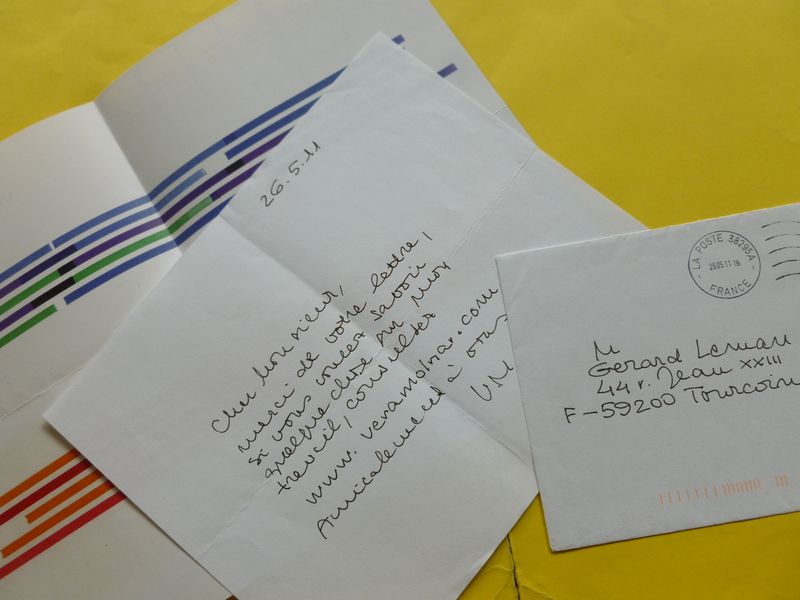 26.5.11
Cher Monsieur,
merci de votre lettre,
si vous voulez savoir
quelque chose sur mon
travail, consultez
www.veramolnar.com
Amicalement à vous
VM
LA POSTE 38295A
26 05 11 19h
FRANCE
M
Gerard Leman
44 r. Jean XXIII
F-59200 Tourcoin